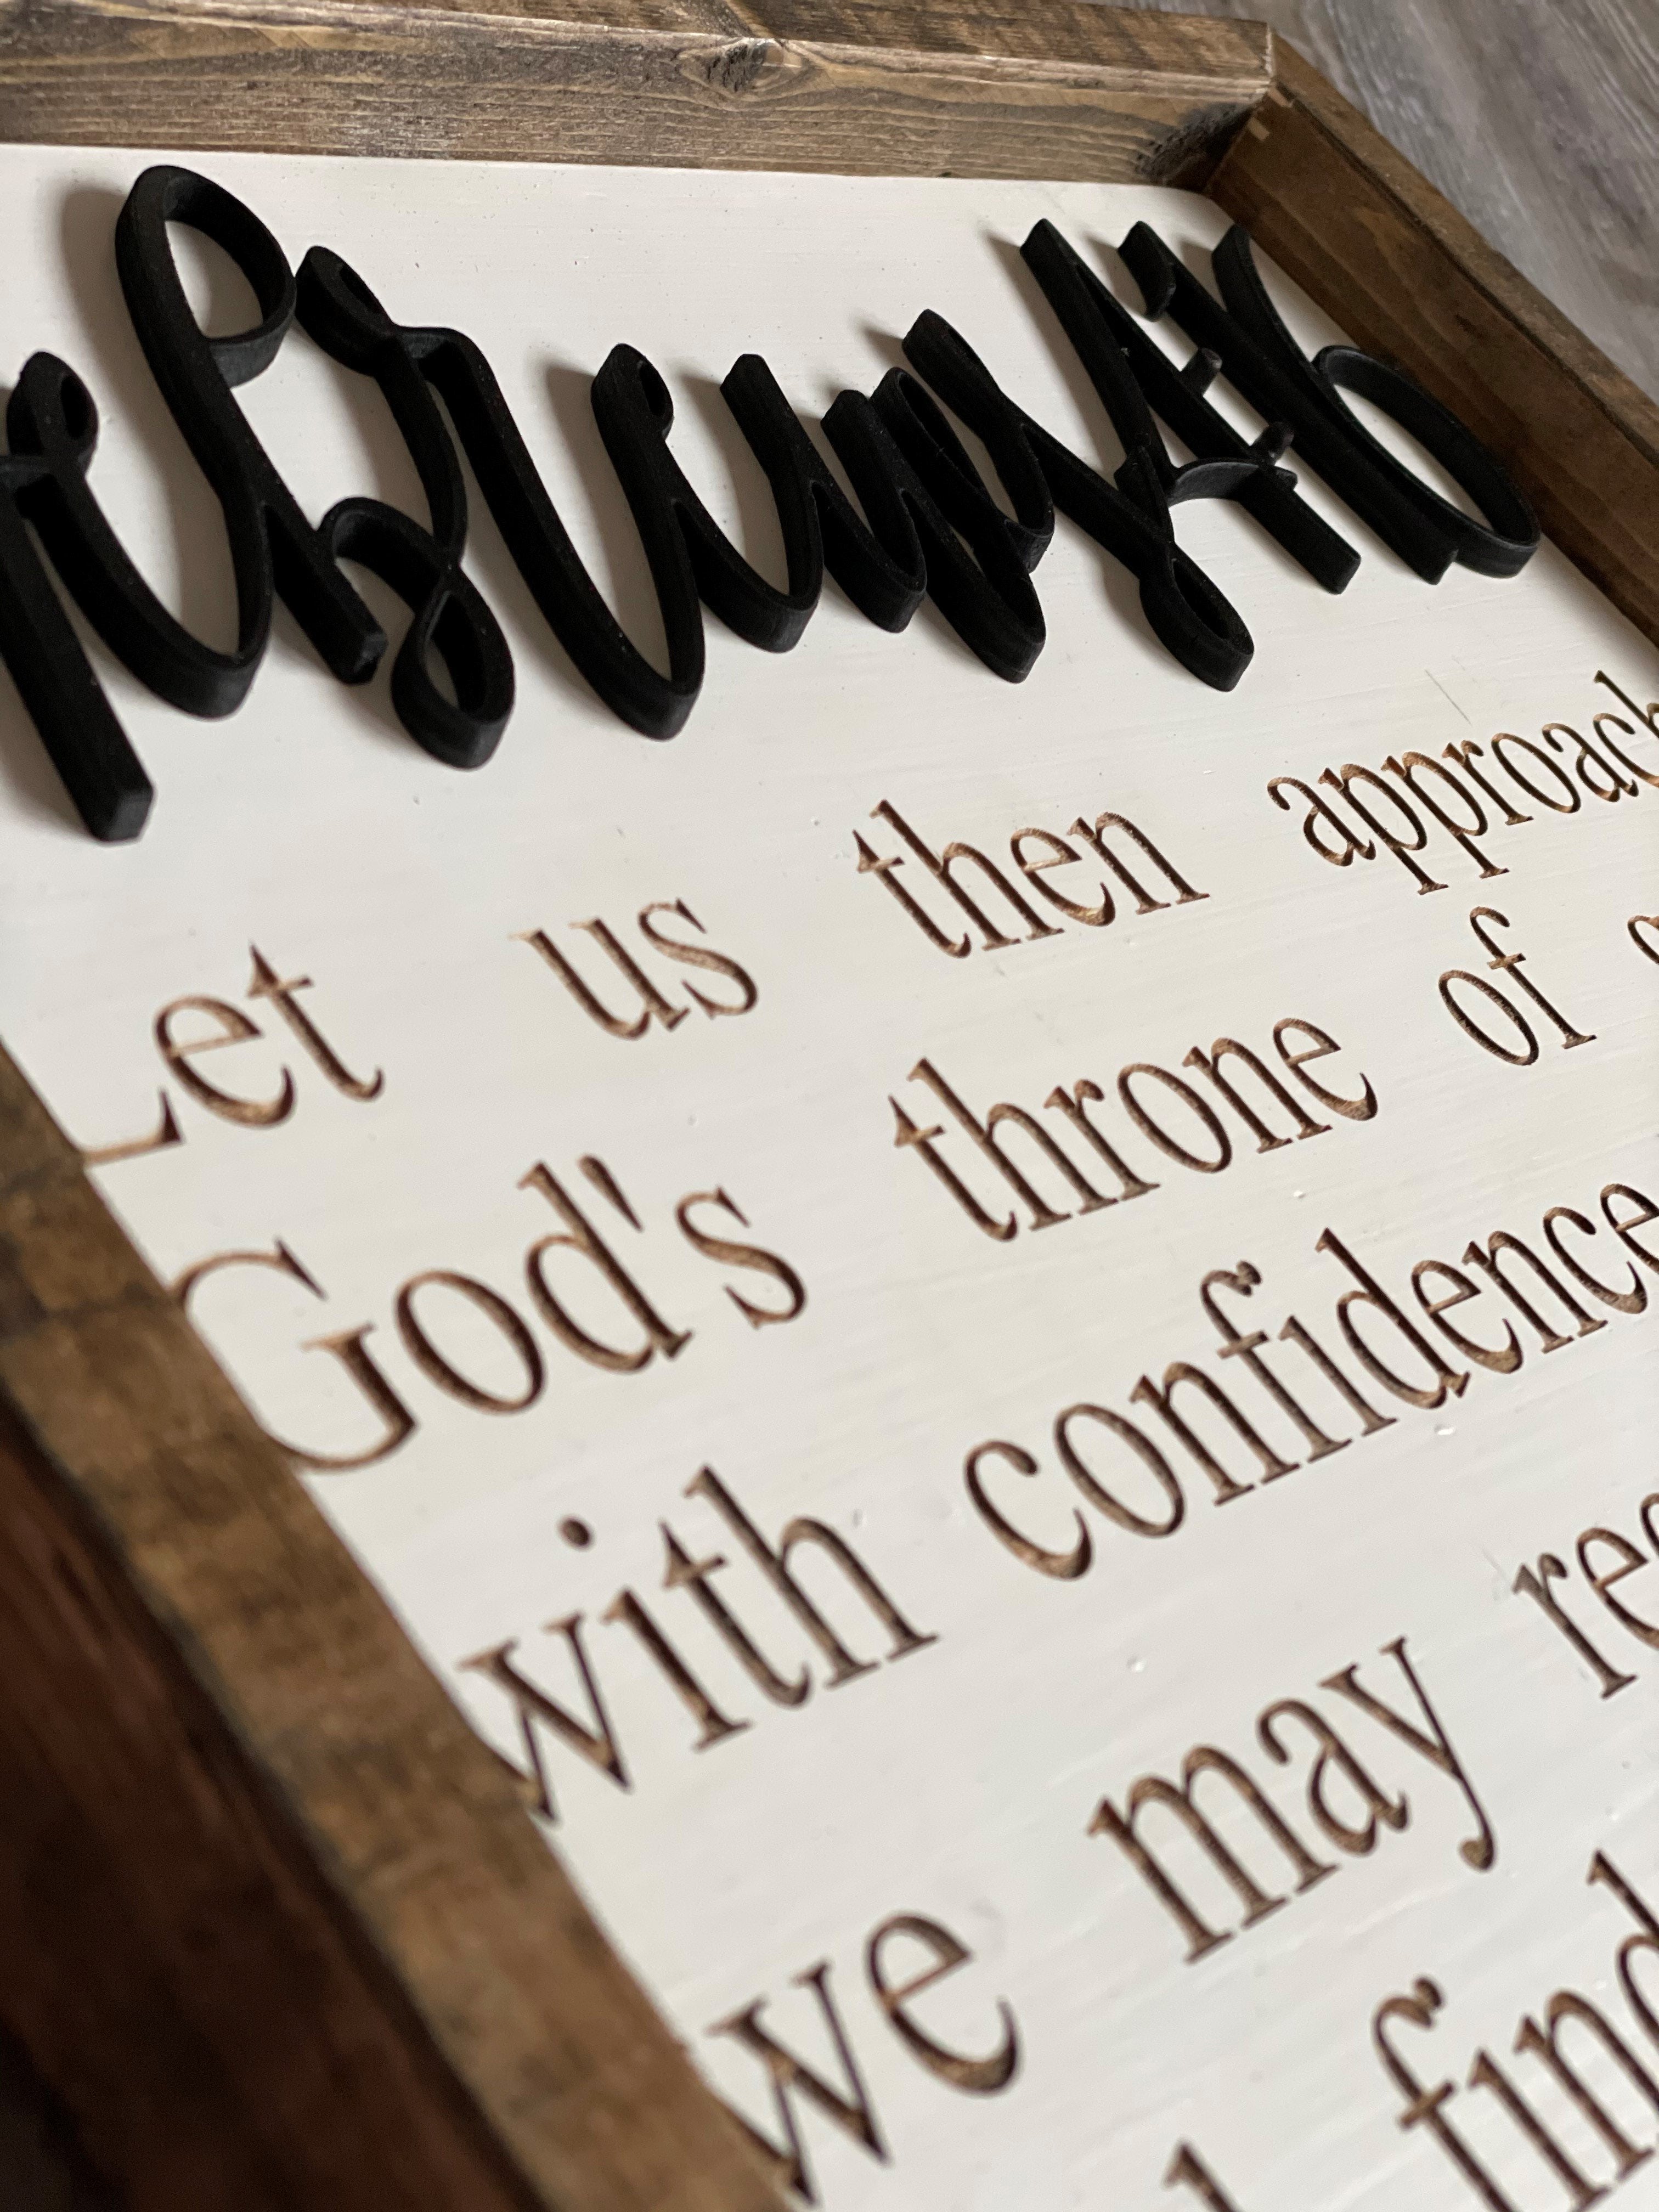 Hebrews 4:16
Let us then approach
God's throne of
with confidence
we may
find